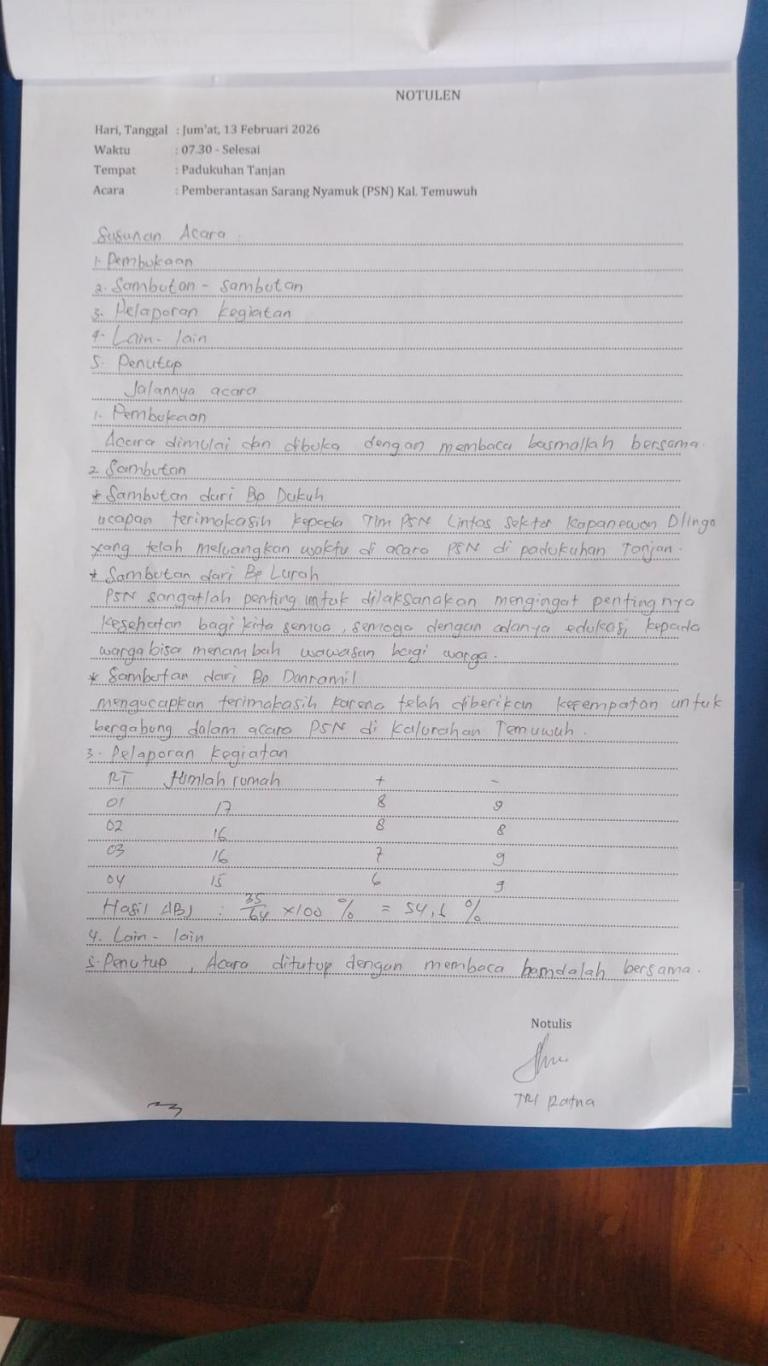 NOTULEN
Hari, Tanggal : Jum'at, 13 Februari 2026
Waktu : 07.30 - Selesai
Tempat : Padukuhan Tanjan
Acara : Pemberantasan Sarang Nyamuk (PSN) Kal. Temuwuh
Susunan Acara :
1. Pembukaan
2. Sambutan - sambutan
3. Pelaporan kegiatan
4. Lain - lain
5. Penutup
Jalannya acara
1. Pembukaan
Acara dimulai dan dibuka dengan membaca basmallah bersama.
2. Sambutan
* Sambutan dari Bp Dukuh
ucapan terimakasih kepada Tim PSN Lintas Sektor Kapanewon Dlingo
yang telah meluangkan waktu di acara PSN di padukuhan Tanjan.
* Sambutan dari Bp Lurah
PSN sangatlah penting untuk dilaksanakan mengingat pentingnya
kesehatan bagi kita semua, semoga dengan adanya edukasi kepada
warga bisa menambah wawasan bagi warga.
* Sambutan dari Bp Danramil
mengucapkan terimakasih karena telah diberikan kesempatan untuk
bergabung dalam acara PSN di Kalurahan Temuwuh.
3. Pelaporan Kegiatan
RT Jumlah rumah + -
01 17 8 9
02 16 8 8
03 16 7 9
04 15 6 9
Hasil ABJ : 35/64 x100 % = 54,6 %
4. Lain - lain
5. Penutup, Acara ditutup dengan membaca hamdalah bersama.
Notulis
TRI Ratna